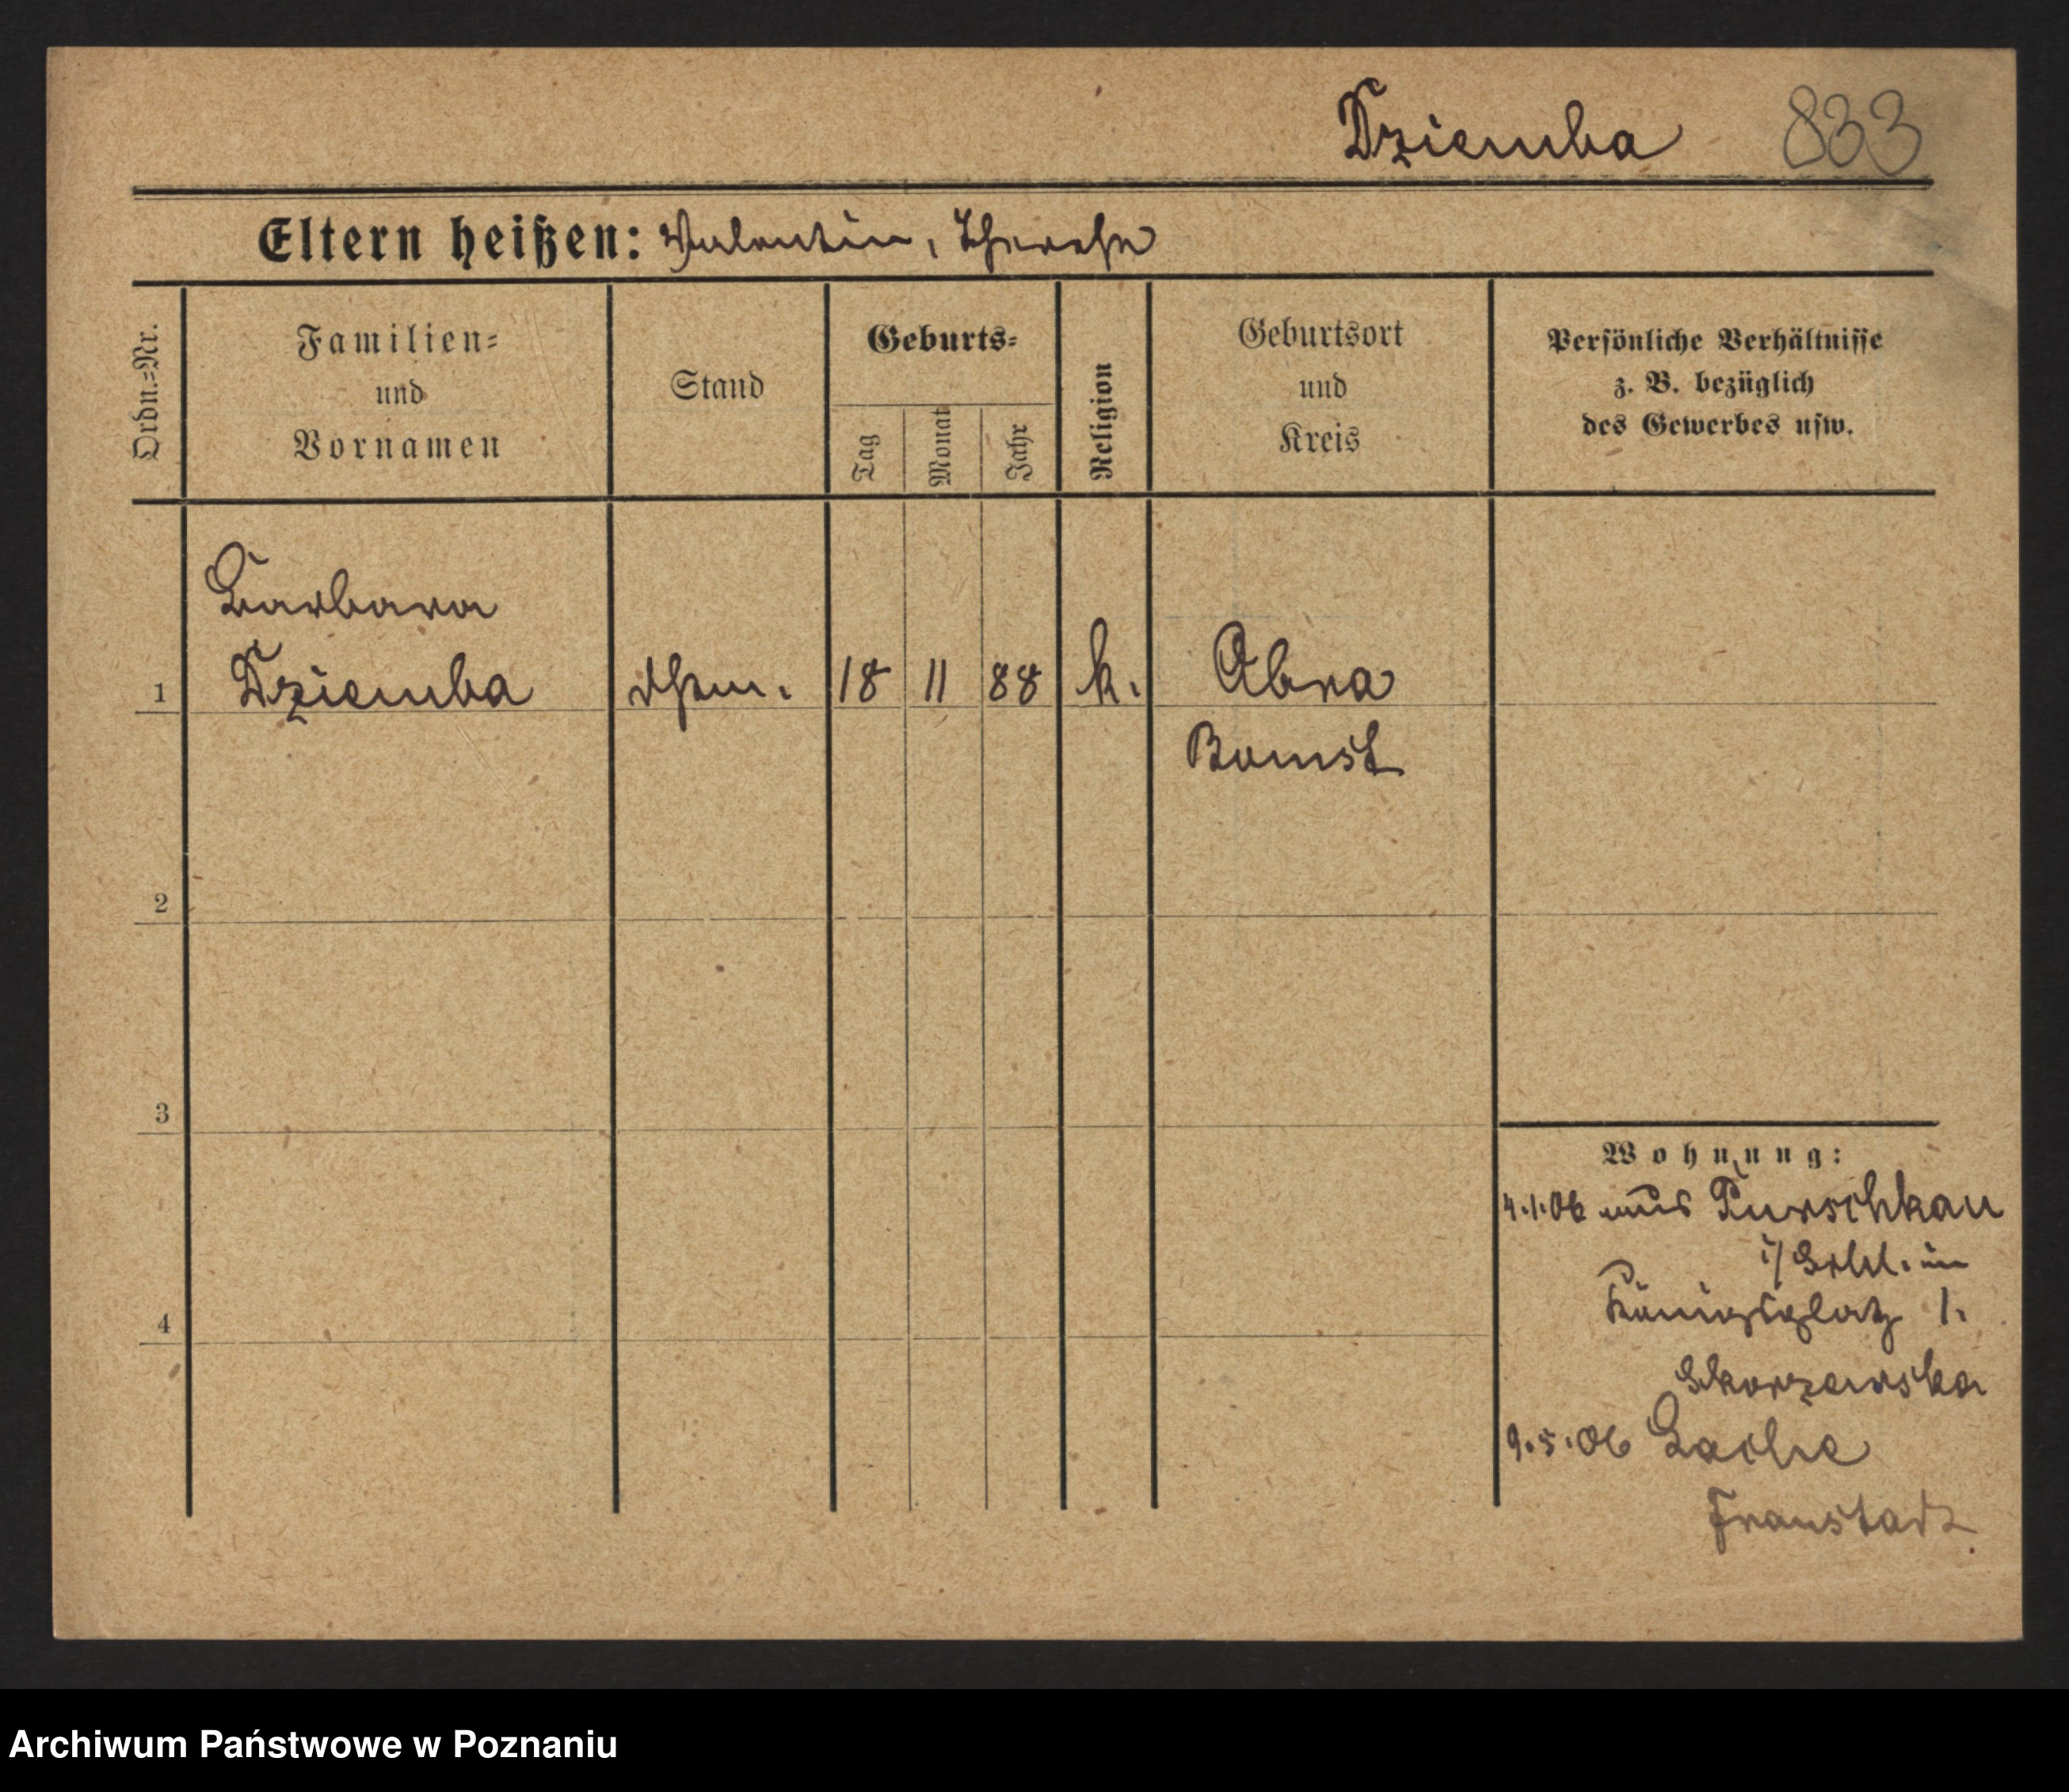 Dziemba 833
Eltern heißen: Valentin, Therese
Ordn.=Nr.
Familien=
und
Vornamen
Stand
Geburts=
Tag
Monat
Jahr
Religion
Geburtsort
und
Kreis
Persönliche Verhältnisse
z. B. bezüglich
des Gewerbes usw.
Barbara
1 Dziemba 18 11 88 k. Abra
Bomst
2
3
4
Wohnung:
4.1.06 aus Purschkau
i/Schl. in
Königsplatz 1.
Skorzewska
9.5.06 Lache
Fraustadt
Archiwum Państwowe w Poznaniu